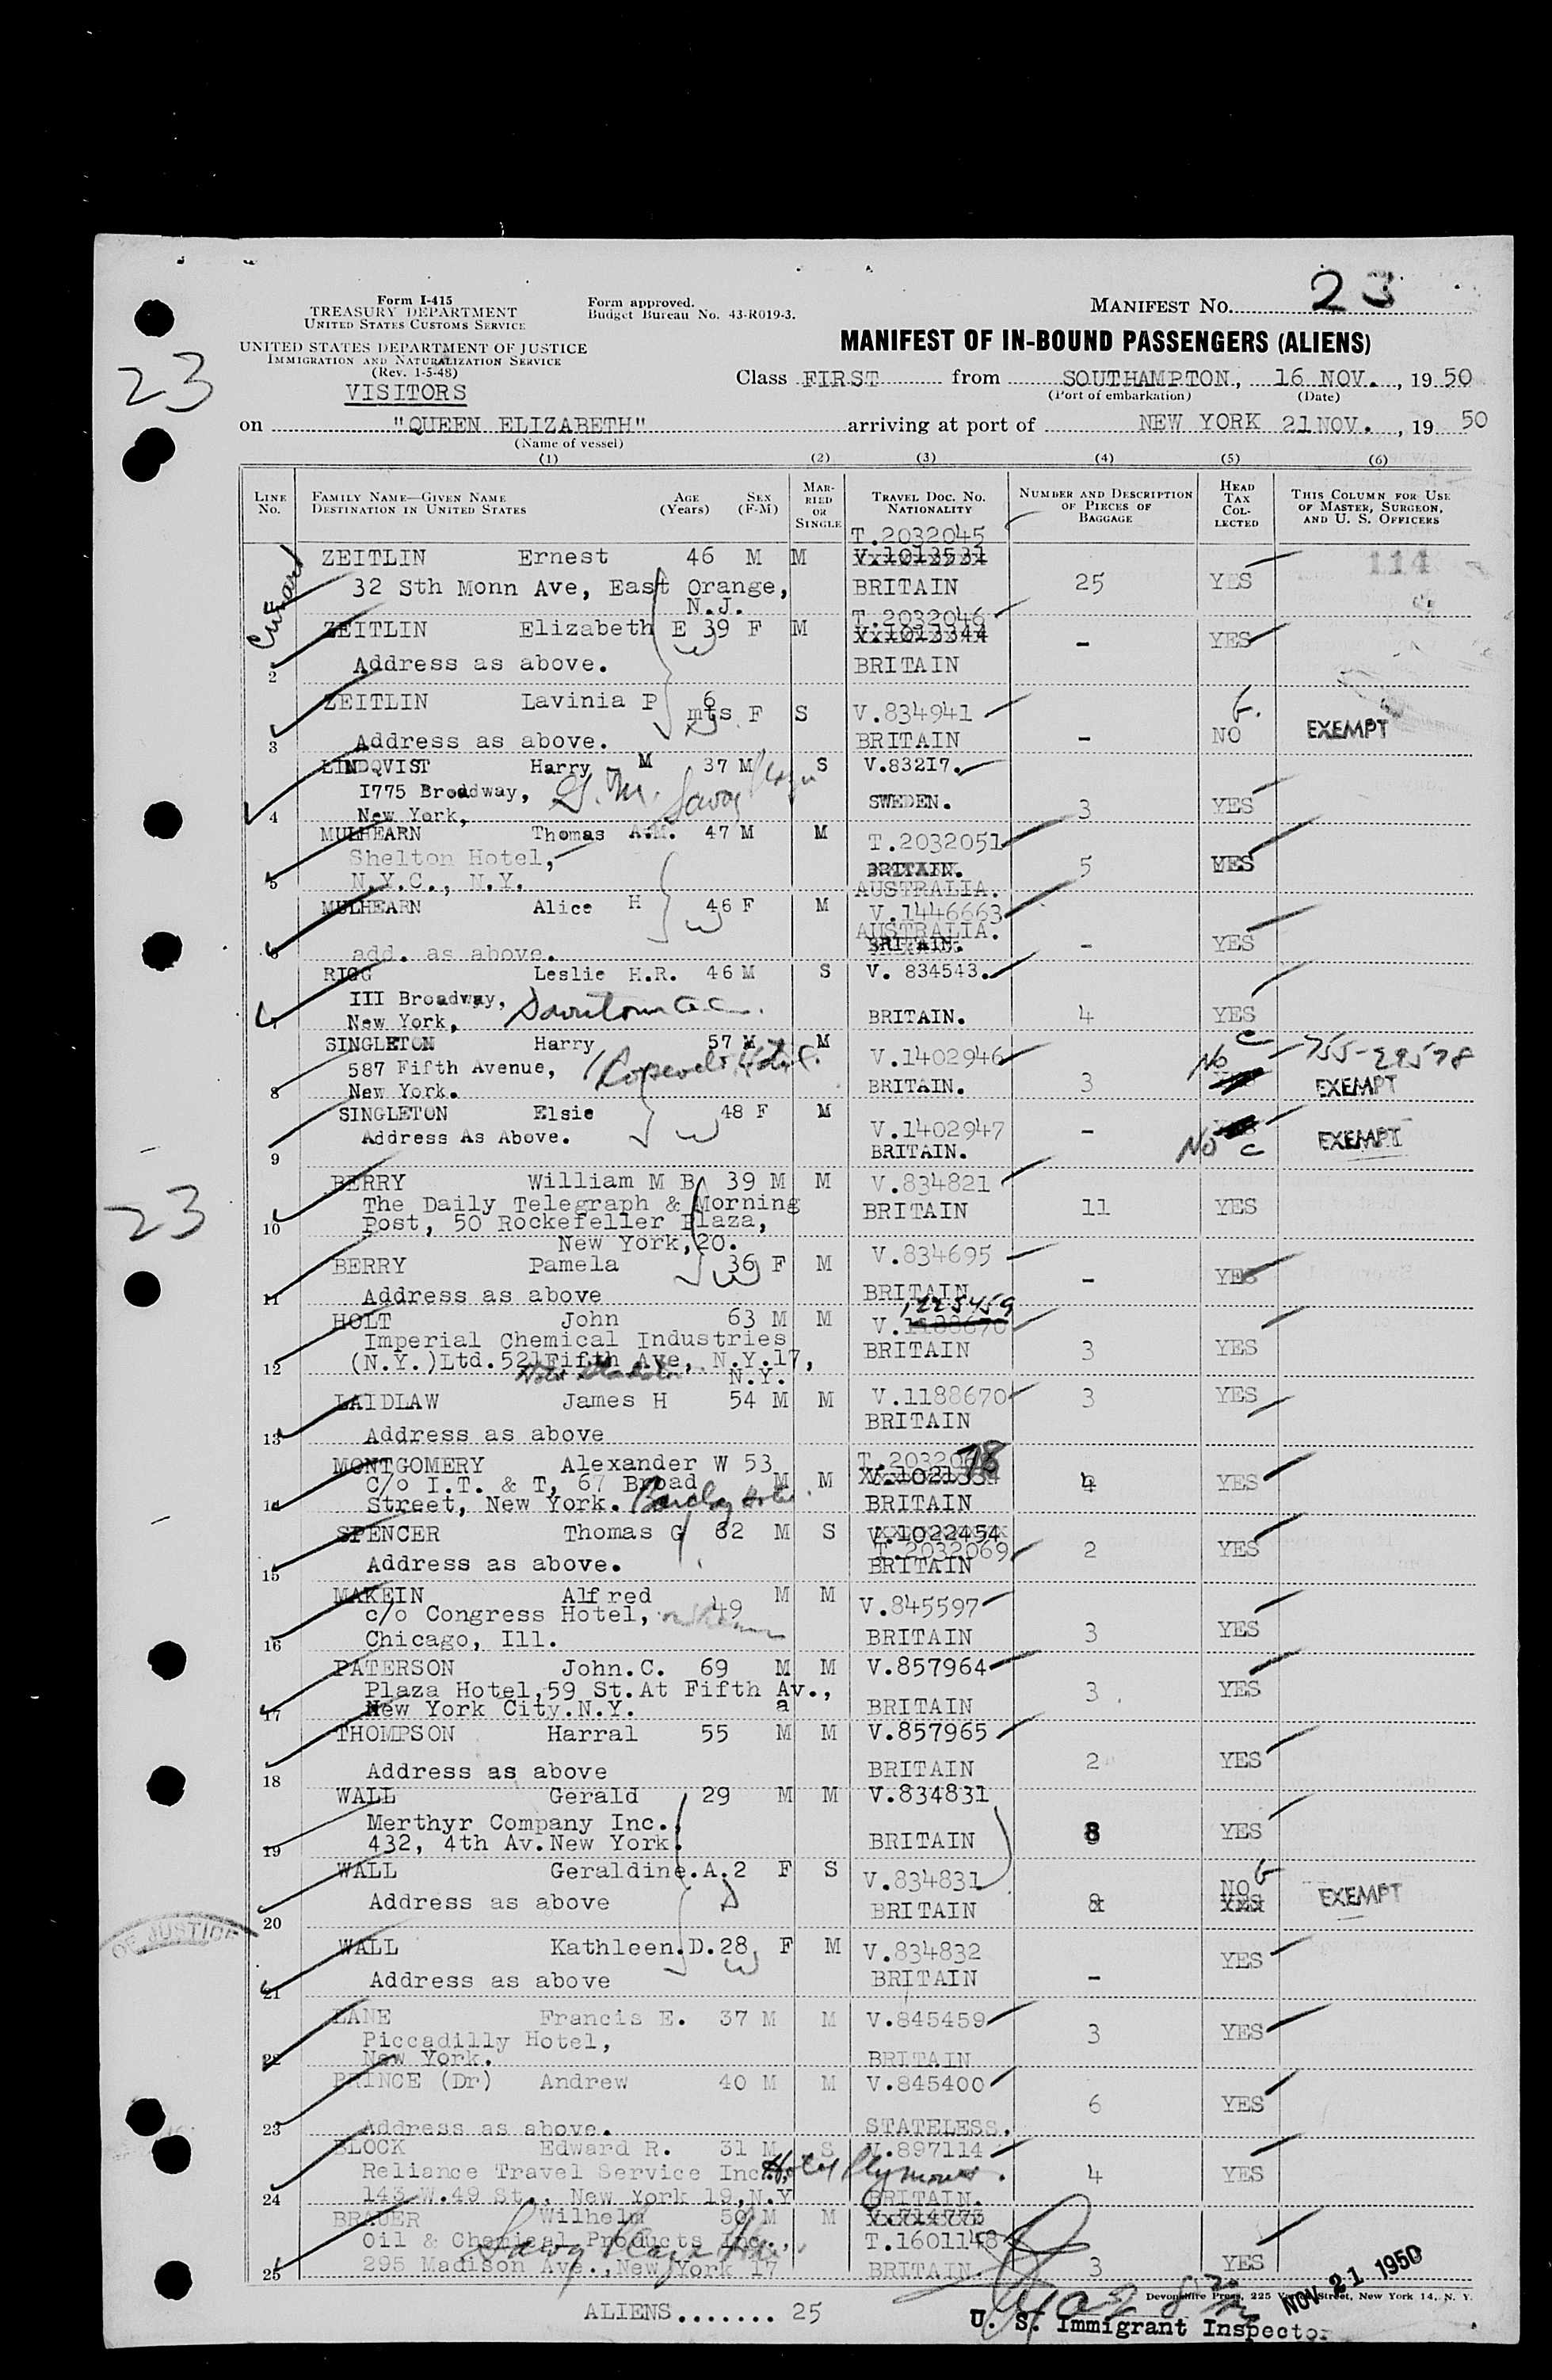 23
Form I-415
TREASURY DEPARTMENT
UNITED STATES CUSTOMS SERVICE
Form approved.
Budget Bureau No. 43-R019-3.
MANIFEST No. 23
UNITED STATES DEPARTMENT OF JUSTICE
IMMIGRATION AND NATURALIZATION SERVICE
(Rev. 1-5-48)
MANIFEST OF IN-BOUND PASSENGERS (ALIENS)
23
VISITORS
Class FIRST from SOUTHAMPTON, 16 NOV., 19 50
(Port of embarkation) (Date)
on "QUEEN ELIZABETH" arriving at port of NEW YORK 21 NOV. , 19 50
(Name of vessel)
(1) (2) (3) (4) (5) (6)
LINE No. FAMILY NAME—GIVEN NAME DESTINATION IN UNITED STATES AGE (Years) SEX (F-M) MARRIED OR SINGLE TRAVEL DOC. No. NATIONALITY NUMBER AND DESCRIPTION OF PIECES OF BAGGAGE HEAD TAX COLLECTED THIS COLUMN FOR USE OF MASTER, SURGEON, AND U. S. OFFICERS
Cunard
T.2032045
ZEITLIN Ernest 46 M M V.1013531
32 Sth Monn Ave, East Orange, BRITAIN 25 YES 114
N.J.
T.2032046
ZEITLIN Elizabeth E 39 F M V.1013344 - YES
W
2 Address as above. BRITAIN
ZEITLIN Lavinia P 6 mts F S V.834941 NO EXEMPT
3 Address as above. BRITAIN -
LINDQVIST Harry M 37 M S V.83217.
I775 Broadway, G.M. Savoy Plaza SWEDEN. 3 YES
4 New York,
MULHEARN Thomas A.M. 47 M M T.2032051
Shelton Hotel, BRITAIN. 5 YES
5 N.Y.C., N.Y. AUSTRALIA.
MULHEARN Alice H 46 F M V.1446663
W AUSTRALIA.
6 add. as above. BRITAIN. - YES
RIGG Leslie H.R. 46 M S V. 834543.
III Broadway, Downtown A.C. BRITAIN. 4 YES
New York,
SINGLETON Harry 57 M M V.1402946 No C 755-29578
587 Fifth Avenue, Roosevelt Hotel. BRITAIN. 3 EXEMPT
8 New York.
SINGLETON Elsie 48 F M V.1402947 -
Address As Above. W BRITAIN. No C EXEMPT
9
BERRY William M B 39 M M V.834821
The Daily Telegraph & Morning BRITAIN 11 YES
10 Post, 50 Rockefeller Plaza,
23
New York,20.
BERRY Pamela 36 F M V.834695 - YES
W
11 Address as above BRITAIN
1225459
HOLT John 63 M M V.1188670
Imperial Chemical Industries BRITAIN 3 YES
12 (N.Y.)Ltd.521Fifth Ave, N.Y.17,
N.Y.
LAIDLAW James H 54 M M V.1188670 3 YES
BRITAIN
13 Address as above
MONTGOMERY Alexander W 53 M M T.2032078
C/o I.T. & T, 67 Broad V.1021334 4 YES
14 Street, New York. Barclay Hotel BRITAIN
SPENCER Thomas G 62 M S V.1022454
T.2032069 2 YES
15 Address as above. BRITAIN
MAKEIN Alfred 49 M M V.845597
c/o Congress Hotel,
16 Chicago, Ill. BRITAIN 3 YES
PATERSON John.C. 69 M M V.857964
Plaza Hotel,59 St.At Fifth Av., 3 YES
17 New York City.N.Y. a BRITAIN
THOMPSON Harral 55 M M V.857965
Address as above BRITAIN 2 YES
18
WALL Gerald 29 M M V.834831
Merthyr Company Inc.,
19 432, 4th Av.New York. BRITAIN 8 YES
WALL Geraldine.A.2 F S V.834831 NO
Address as above D BRITAIN & YES EXEMPT
20
OF JUSTICE
WALL Kathleen.D.28 F M V.834832 YES
W
Address as above BRITAIN -
21
LANE Francis E. 37 M M V.845459
Piccadilly Hotel, 3 YES
22 New York. BRITAIN
PRINCE (Dr) Andrew 40 M M V.845400
6 YES
23 Address as above. STATELESS.
BLOCK Edward R. 31 M S V.897114
Reliance Travel Service Inc., Hotel Plymouth. 4 YES
24 143 W.49 St., New York 19,N.Y BRITAIN.
BRAUER Wilhelm 50 M M V.714773
Oil & Chemical Products Inc., T.1601148
Savoy Plaza Hotel
25 295 Madison Ave.,New York 17 BRITAIN. 3 YES
Devonshire Press, 225 Varick Street, New York 14, N. Y.
ALIENS....... 25
NOV 21 1950
U. S. Immigrant Inspector